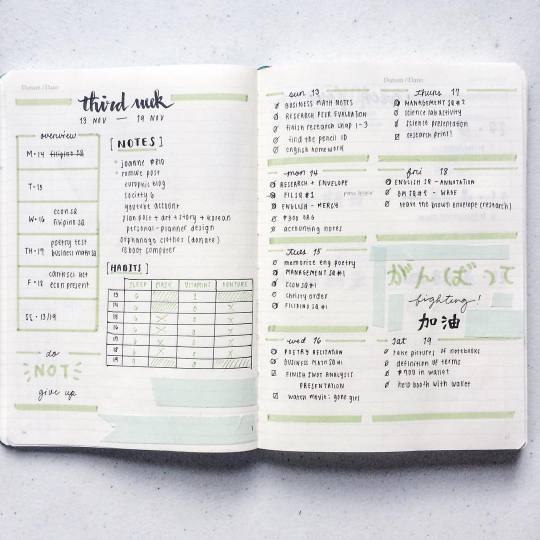 Datum / Date:
third week
13 NOV — 19 NOV
overview
M • 14 filipino SQ
T • 15
W • 16 econ SQ
filipino SQ
TH • 17 poetry test
business math SQ
F • 18
econ present
SS • 13/19
do
NOT
give up
[ NOTES ]
remove post
society 6
youtube account
plan post + art + story + korean
personal - planner design
orphanage clothes (donate)
reboot computer
[ HABITS ]
SLEEP MATH VITAMINS
13
14
15
16
17
18
19
Datum / Date:
sun 13
BUSINESS MATH NOTES
RESEARCH PEER EVALUATION
finish research chap 1-3
find the pencil ID
english homework
mon 14
RESEARCH + ENVELOPE
FIL SQ #1
ENGLISH - MERCY
accounting notes
tues 15
memorize eng poetry
MANAGEMENT SQ #1
ECON SQ #1
christy order
FILIPINO SQ #1
wed 16
POETRY RECITATION
BUSINESS MATH SQ #1
FINISH SWOT ANALYSIS
PRESENTATION
watch movie: gone girl
thurs 17
MANAGEMENT SQ #2
science lab activity
science presentation
research print!
fri 18
ENGLISH SQ - ANNOTATION
leave the brown envelope (research)
がんばって
fighting!
加油
sat 19
take pictures of notebooks
definition of terms
in wallet